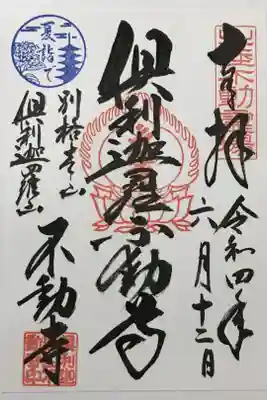 奉拝
令和四年
六月十二日
倶利迦羅不動尊
夏詣で
別格本山
倶利迦羅山
不動寺